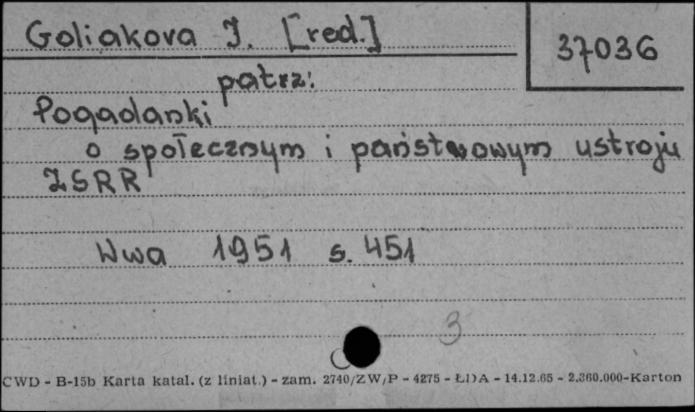 Goliakova J. [red.]
37036
patrz:
Pogadanki
o społecznym i państwowym ustroju
ZSRR
Wwa 1951 s. 451
3
CWD - B-15b Karta katal. (z liniat.) - zam. 2740/ZW/P - 4275 - ŁDA - 14.12.65 - 2.360.000-Karton